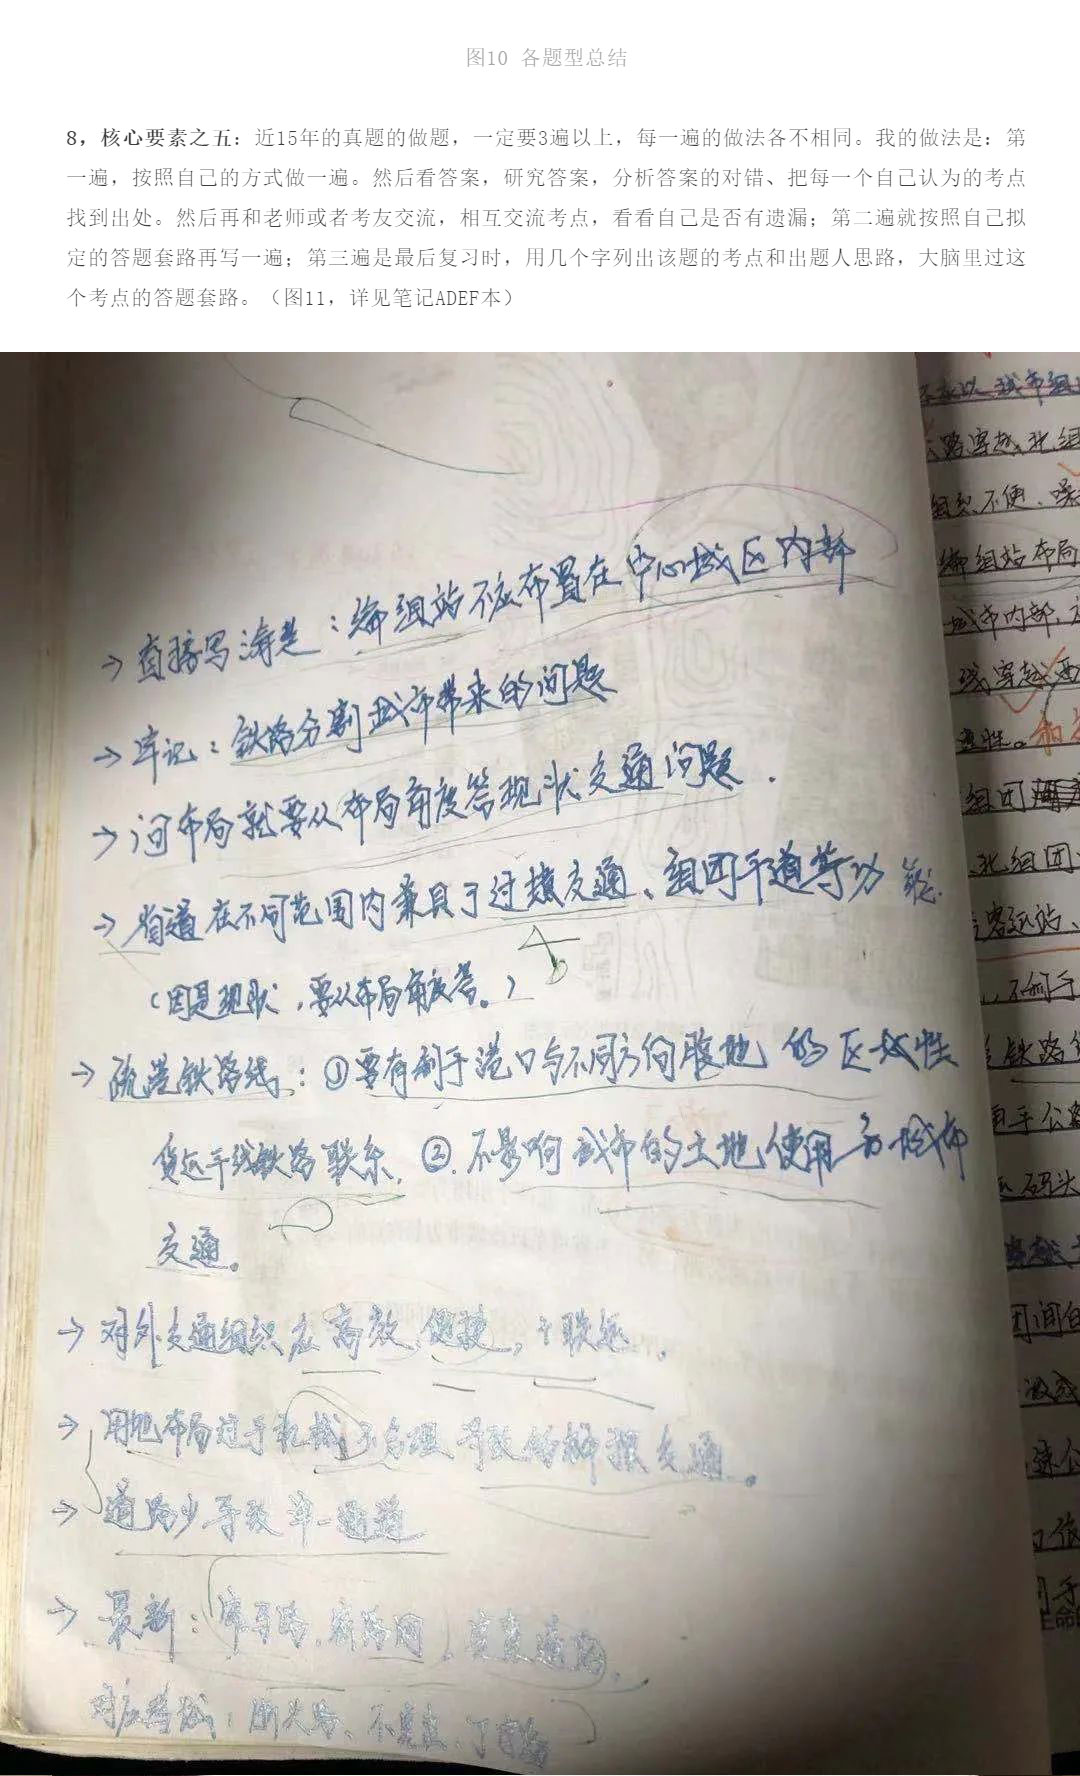 图10 各题型总结
8，核心要素之五：近15年的真题的做题，一定要3遍以上，每一遍的做法各不相同。我的做法是：第
一遍，按照自己的方式做一遍。然后看答案，研究答案，分析答案的对错、把每一个自己认为的考点
找到出处。然后再和老师或者考友交流，相互交流考点，看看自己是否有遗漏；第二遍就按照自己拟
定的答题套路再写一遍；第三遍是最后复习时，用几个字列出该题的考点和出题人思路，大脑里过这
个考点的答题套路。（图11，详见笔记ADEF本）
→直接写清楚：编组站不应布置在中心城区内部
→牢记：铁路分割城市带来的问题
→问布局就要从布局角度答现状交通问题.
→省道在不同范围内兼具了过境交通、组团干道等功能.
（因是现状，要从布局角度答。）
→疏港铁路线：①要有利于港口与不同方向腹地的区域性
货运干线铁路联系. ②.不影响城市的土地使用和城市
交通。
→对外交通组织应高效、便捷，+联运.
→用地布局过于机械、不合理导致的钟摆交通。
→道路少导致单一通道
→最新：窄马路，密路网，宜直通路.
对应考试：断头路、不宜直、丁字路
城市内部，
组团
北组团
客运站、
码头